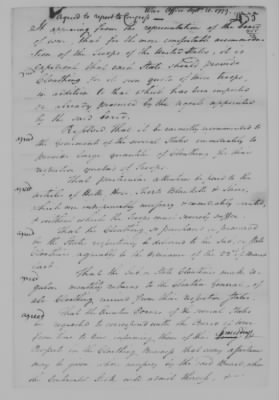 War Office Sept 21. 1779.
Agreed to report to Congress
It appearing from the representation of the Board
of War, that for the more comfortable accommoda-
tion of the Troops of the United States, it is
expedient that each State should provide
Cloathing for its own quota of those troops,
in addition to that which has been imported
or already procured by the agents appointed
by the said board,
Resolved that it be earnestly recommended to
the Government of the several States immediately to
provide large quantities of Cloathing for their
respective quotas of Troops.
agreed
That particular attention be paid to the
articles of Shirts Blankets & Shoes,
which are indispensably necessary & immediately wanted,
& without which the Troops must severely suffer.
agreed
That the Cloathing so purchased or procured
by the States respectively be delivered to the Sub, or State
Cloathier agreeably to the ordinance of the 23d of March
last.
agreed
That the Sub or State Cloathiers make re-
gular monthly returns to the Cloathier General, of
all Cloathing received from their respective States.
agreed
That the Executive Powers of the several States
be requested to correspond with the Board of War
from time to time informing them of the
Prospects in the Cloathing Business that every assistance
may be given when necessary by the said Board, when
the Continental Stock will admit thereof,